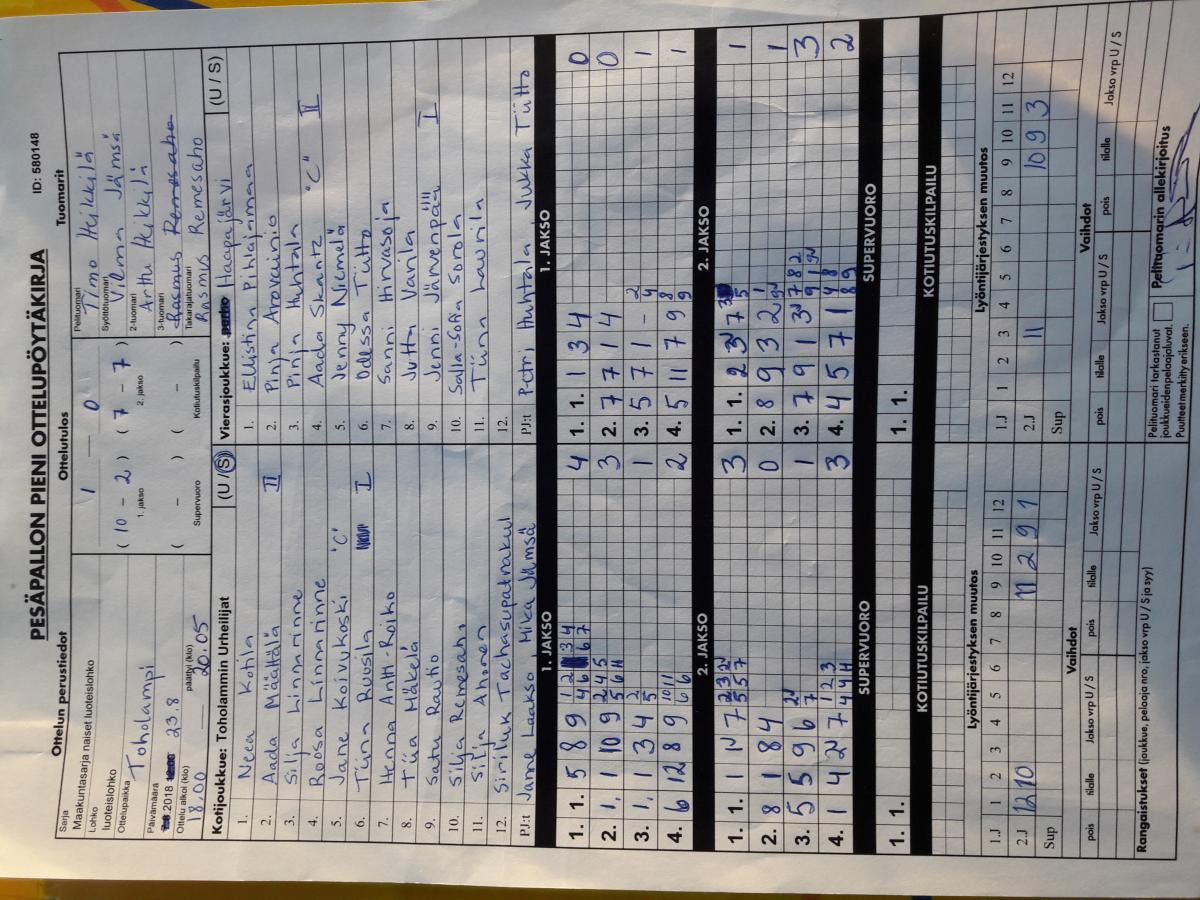 PESÄPALLON PIENI OTTELUPÖYTÄKIRJA
ID: 580148
Ottelun perustiedot
Ottelutulos
Tuomarit
Sarja
Maakuntasarja naiset luoteislohko
Lohko
luoteislohko
Ottelupaikka
Toholampi
Päivämäärä
2018 23.8
Ottelu alkoi (klo)
18.00
päättyi (klo)
20.05
1 — 0
( 10 - 2 ) ( 7 - 7 )
1. jakso 2. jakso
( - ) ( - )
Supervuoro Kotiutuskilpailu
Pelituomari
Timo Heikkilä
Syöttötuomari
Vilema Jämsä
2-tuomari
Arttu Heikkilä
3-tuomari
Rasmus Remesaho
Takarajatuomari
Rasmus Remesaho
Kotijoukkue: Toholammin Urheilijat (U / S)
1. Neea Kohla
2. Aada Määttälä II
3. Silja Linnarinne
4. Roosa Linnarinne
5. Jane Koivukoski "C"
6. Tiina Ruusila I
7. Henna Antti-Roiko
8. Tiia Mäkelä
9. Satu Rautio
10. Silja Remesaho
11. Silja Ahonen
12. Siriluk Tachasupatrakul
PJ:t Jame Laakso Mika Jämsä
Vierasjoukkue: Haapajärvi (U / S)
1. Ellistina Pihlajamaa
2. Pinja Arovainio
3. Pinja Huhtala
4. Aada Skantz "C" II
5. Jenny Niemelä
6. Odessa Tiitto
7. Sanni Hirvasoja
8. Jutta Varila
9. Jenni Järvenpää I
10. Salla-Sofia Sorola
11. Tiina Laurila
12.
PJ:t Petri Huhtala Jukka Tiitto
1. JAKSO
1. 1. 5 8 9 4
2. 1. 1 10 9 3
3. 1. 1 3 4 1
4. 6 12 8 9 2
1. JAKSO
1. 1. 1 3 4 0
2. 7 7 1 4 0
3. 5 7 1 - 1
4. 5 11 7 9 1
2. JAKSO
1. 1. 1 2 7 3
2. 8 1 8 4 0
3. 5 5 9 6 1
4. 1 4 2 7 3
2. JAKSO
1. 1. 2 3 7 1
2. 8 9 3 2 1
3. 7 9 1 3 3
4. 4 5 7 1 2
SUPERVUORO
1. 1.
SUPERVUORO
1. 1.
KOTIUTUSKILPAILU
KOTIUTUSKILPAILU
Lyöntijärjestyksen muutos
1 2 3 4 5 6 7 8 9 10 11 12
1.J
2.J 12 10 11 2 9 1
Sup
Lyöntijärjestyksen muutos
1 2 3 4 5 6 7 8 9 10 11 12
1.J
2.J 11 10 9 3
Sup
Vaihdot
pois tilalle Jakso vrp U / S pois tilalle Jakso vrp U / S
Vaihdot
pois tilalle Jakso vrp U / S pois tilalle Jakso vrp U / S
Rangaistukset (joukkue, pelaaja nro, jakso vrp U / S ja syy)
Pelituomari tarkastanut joukkueiden pelaajaluvat.
Puutteet merkitty erikseen.
Pelituomarin allekirjoitus